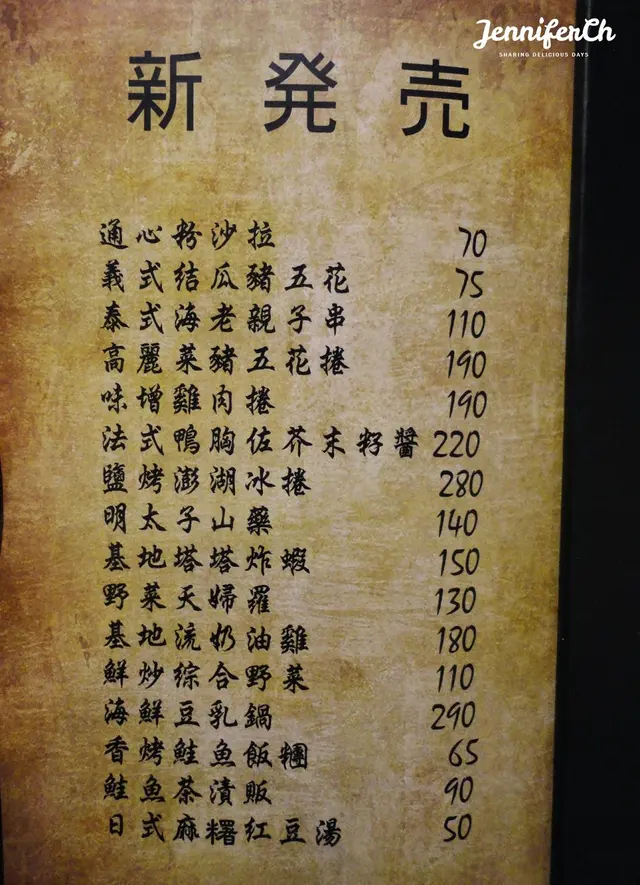 JenniferCh
SHARING DELICIOUS DAYS
新発売
通心粉沙拉 70
義式結瓜豬五花 75
泰式海老親子串 110
高麗菜豬五花捲 190
味增雞肉捲 190
法式鴨胸佐芥末籽醬 220
鹽烤澎湖冰捲 280
明太子山藥 140
基地塔塔炸蝦 150
野菜天婦羅 130
基地流奶油雞 180
鮮炒綜合野菜 110
海鮮豆乳鍋 290
香烤鮭魚飯糰 65
鮭魚茶漬販 90
日式麻糬紅豆湯 50